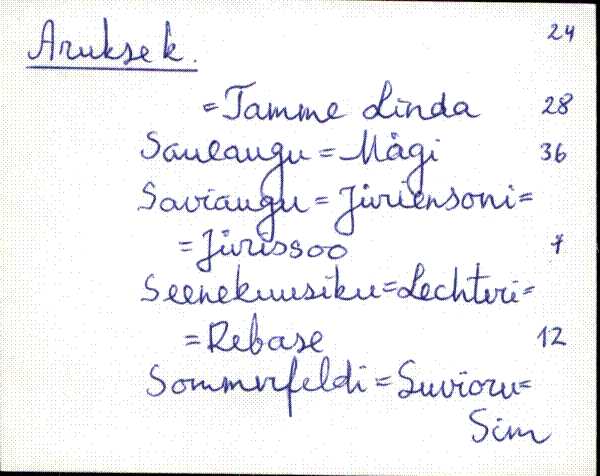 Arukse k. 24
=Tamme Linda 28
Saueaugu=Mägi 36
Saviaugu=Jüriensoni=
=Jürissoo 7
Seenekuusiku=Lechteri=
=Rebase 12
Sommerfeldi=Suvioru=
Sim